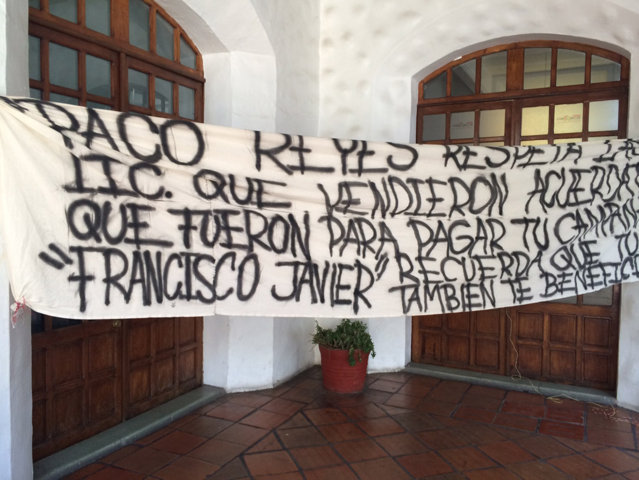 PACO REYES RESPETA LAS
LIC. QUE VENDIERON ACUERDATE
QUE FUERON PARA PAGAR TU CAMPAÑA
"FRANCISCO JAVIER" RECUERDA QUE TU
TAMBIEN TE BENEFICI